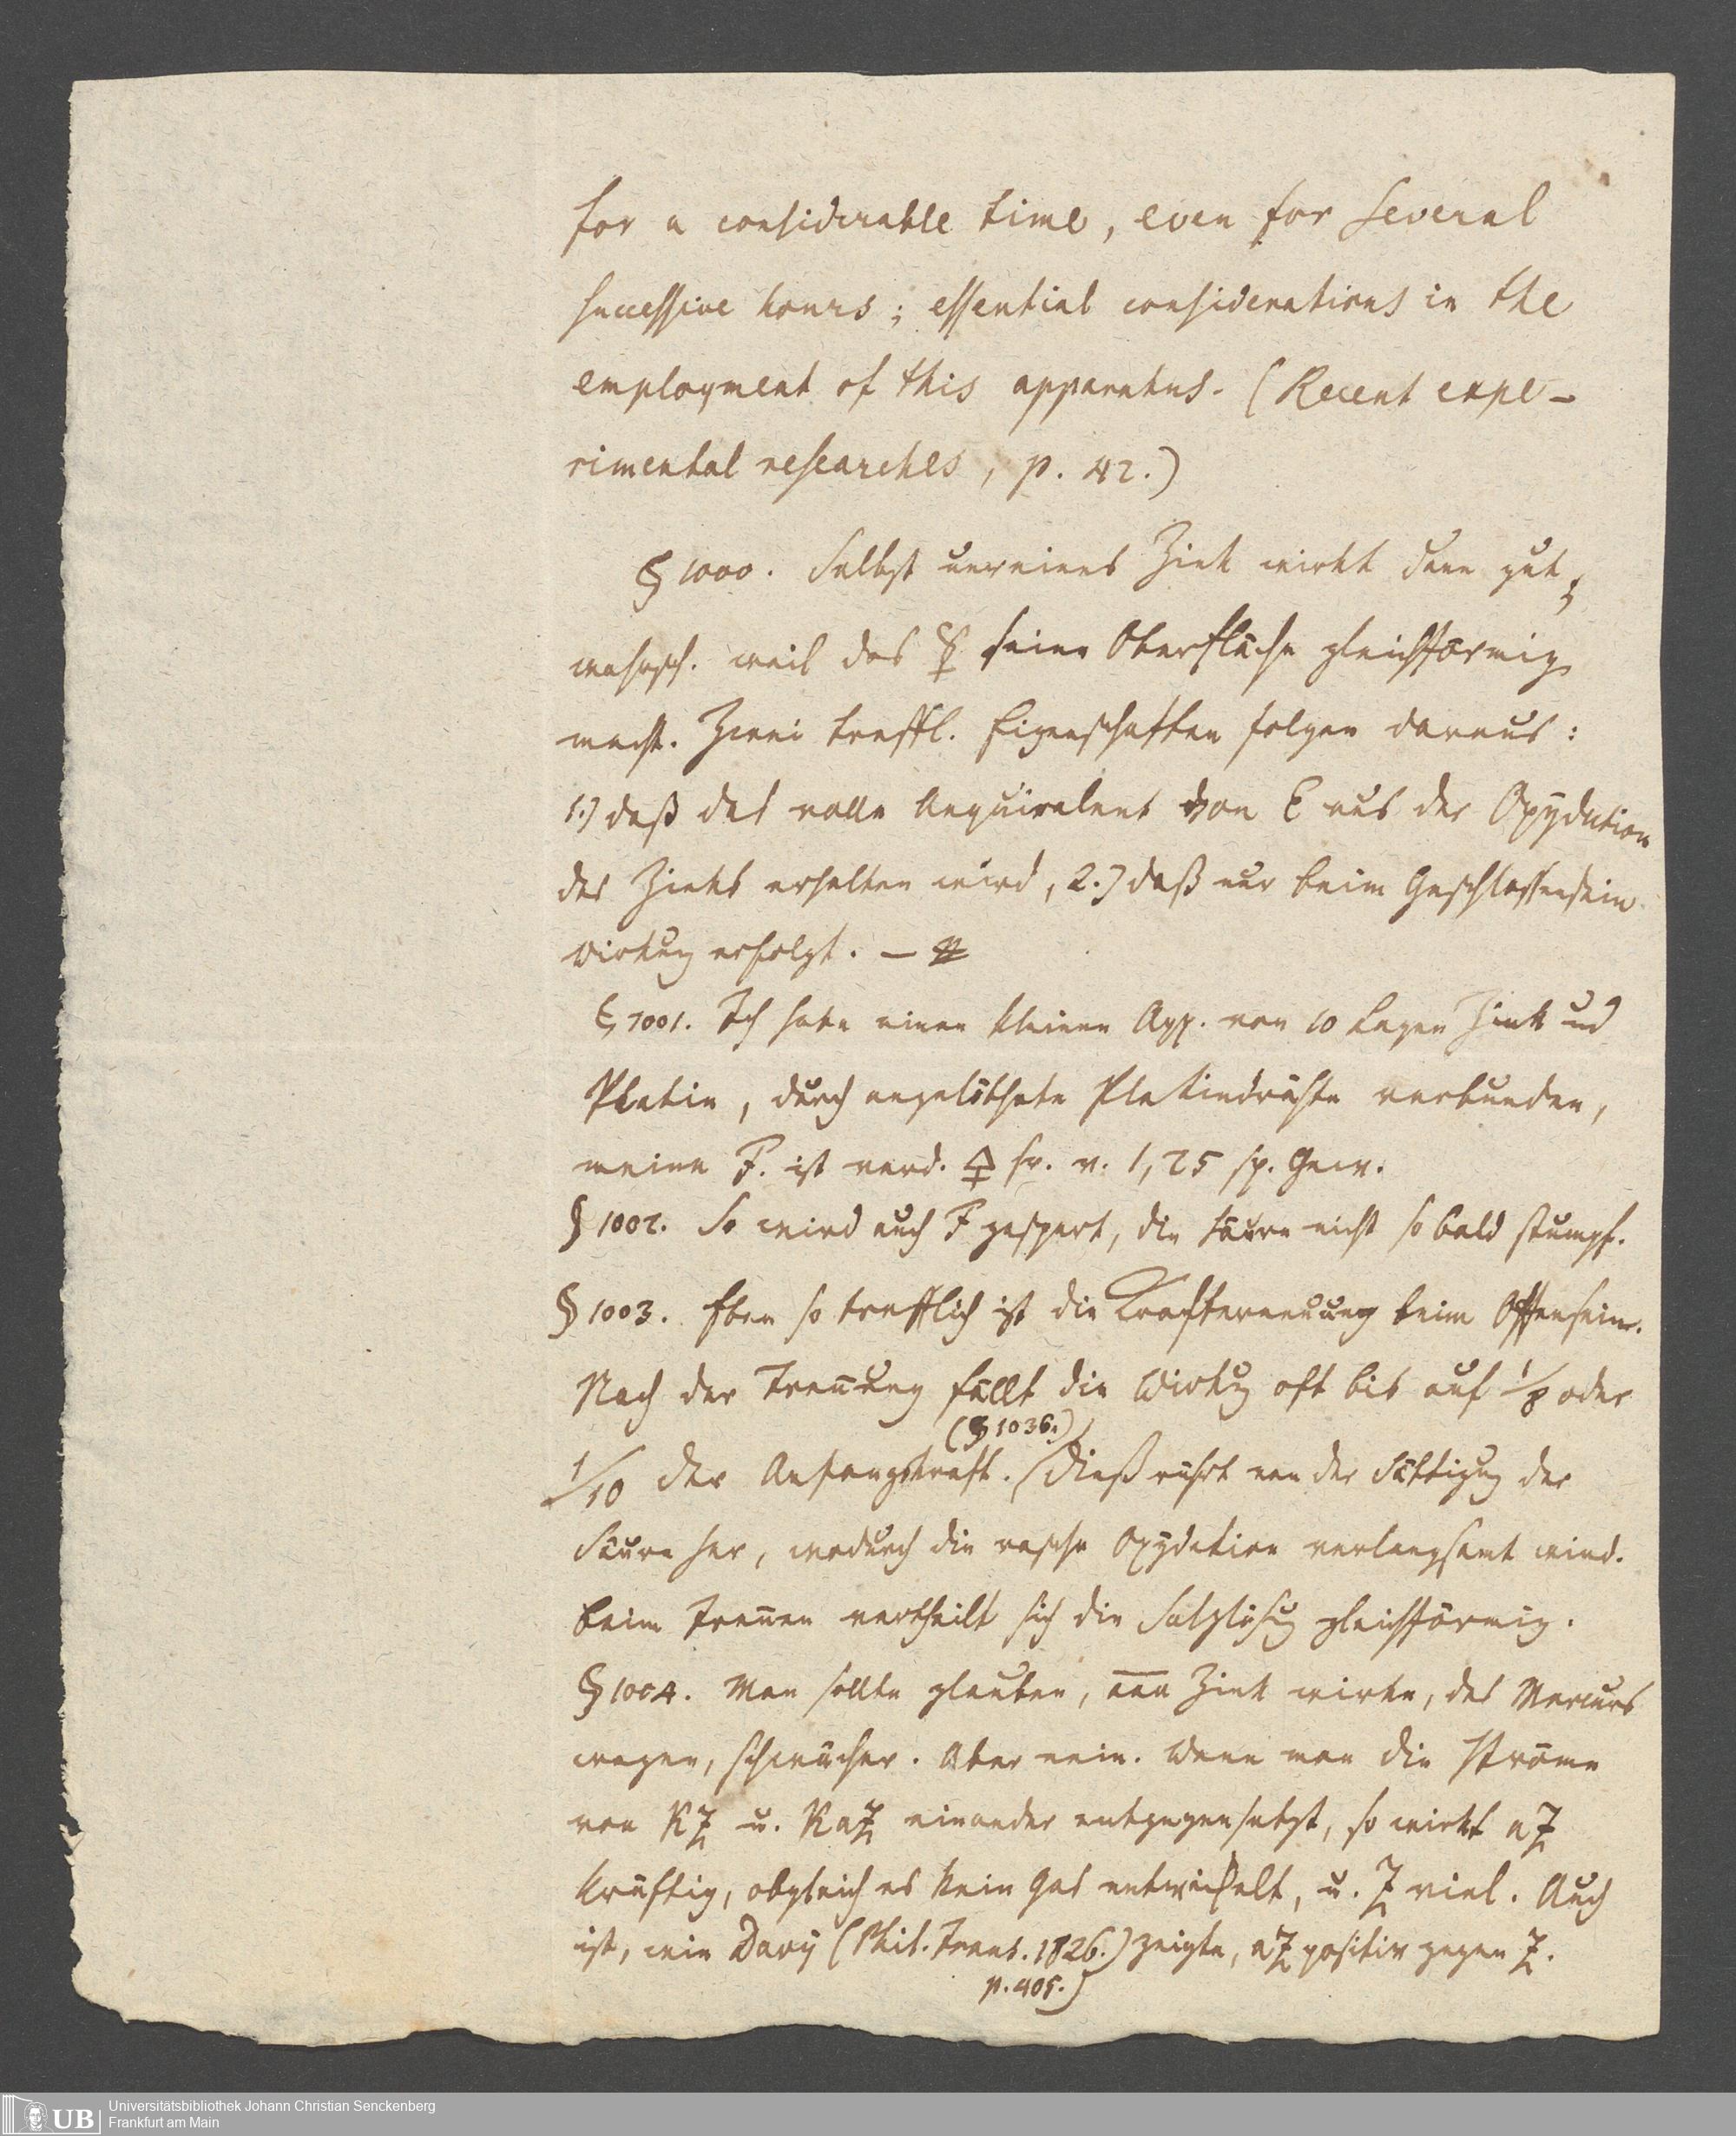 for a considerable time, even for several
successive hours; essential considerations in the
employment of this apparatus. (Recent expe-
rimental researches, p. 42.)
§ 1000. Selbst unreines Zink wirkt dann gut,
wahrsch. weil das ☿ seine Oberfläche gleichförmig
macht. Zwei treffl. Eigenschaften folgen daraus:
1.) daß das volle Aequivalent von E aus der Oxydation
des Zinks erhalten wird, 2.) daß nur beim Geschlossensein
Wirkung erfolgt. —
§ 1001. Ich habe einen kleinen App. von 10 Lagen Zink und
Platin, durch angelöthete Platindrähte verbunden,
meine F. ist verd. 🜍 sr. v. 1,25 sp. Gew.
§ 1002. So wird auch F gespart, die Säure nicht so bald stumpf.
§ 1003. Eben so trefflich ist die Krafterneuung beim Offensein.
Nach der Trennung fällt die Wirkung oft bis auf 1/8 oder
(§ 1036.)
1/10 der Anfangskraft. Dieß rührt von der Sättigung der
Säure her, wodurch die rasche Oxydation verlangsamt wird.
Beim Trennen vertheilt sich die Salzlösung gleichförmig.
§ 1004. Man sollte glauben, Zink wirke, des Mercurs
wegen, schwächer. Aber nein. Wenn man die Ströme
von KZ u. KaZ einander entgegensetzt, so wirkt aZ
kräftig, obgleich es kein Gas entwickelt, u. Z viel. Auch
ist, wie Davy (Phil. Trans. 1826.) zeigte, aZ positiv gegen Z.
p. 405.)
Universitätsbibliothek Johann Christian Senckenberg
UB Frankfurt am Main